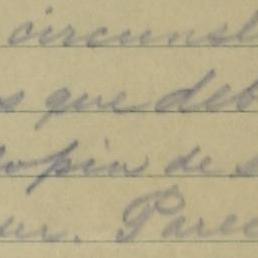 circunst
s que deb
copia de s
ur. Parec